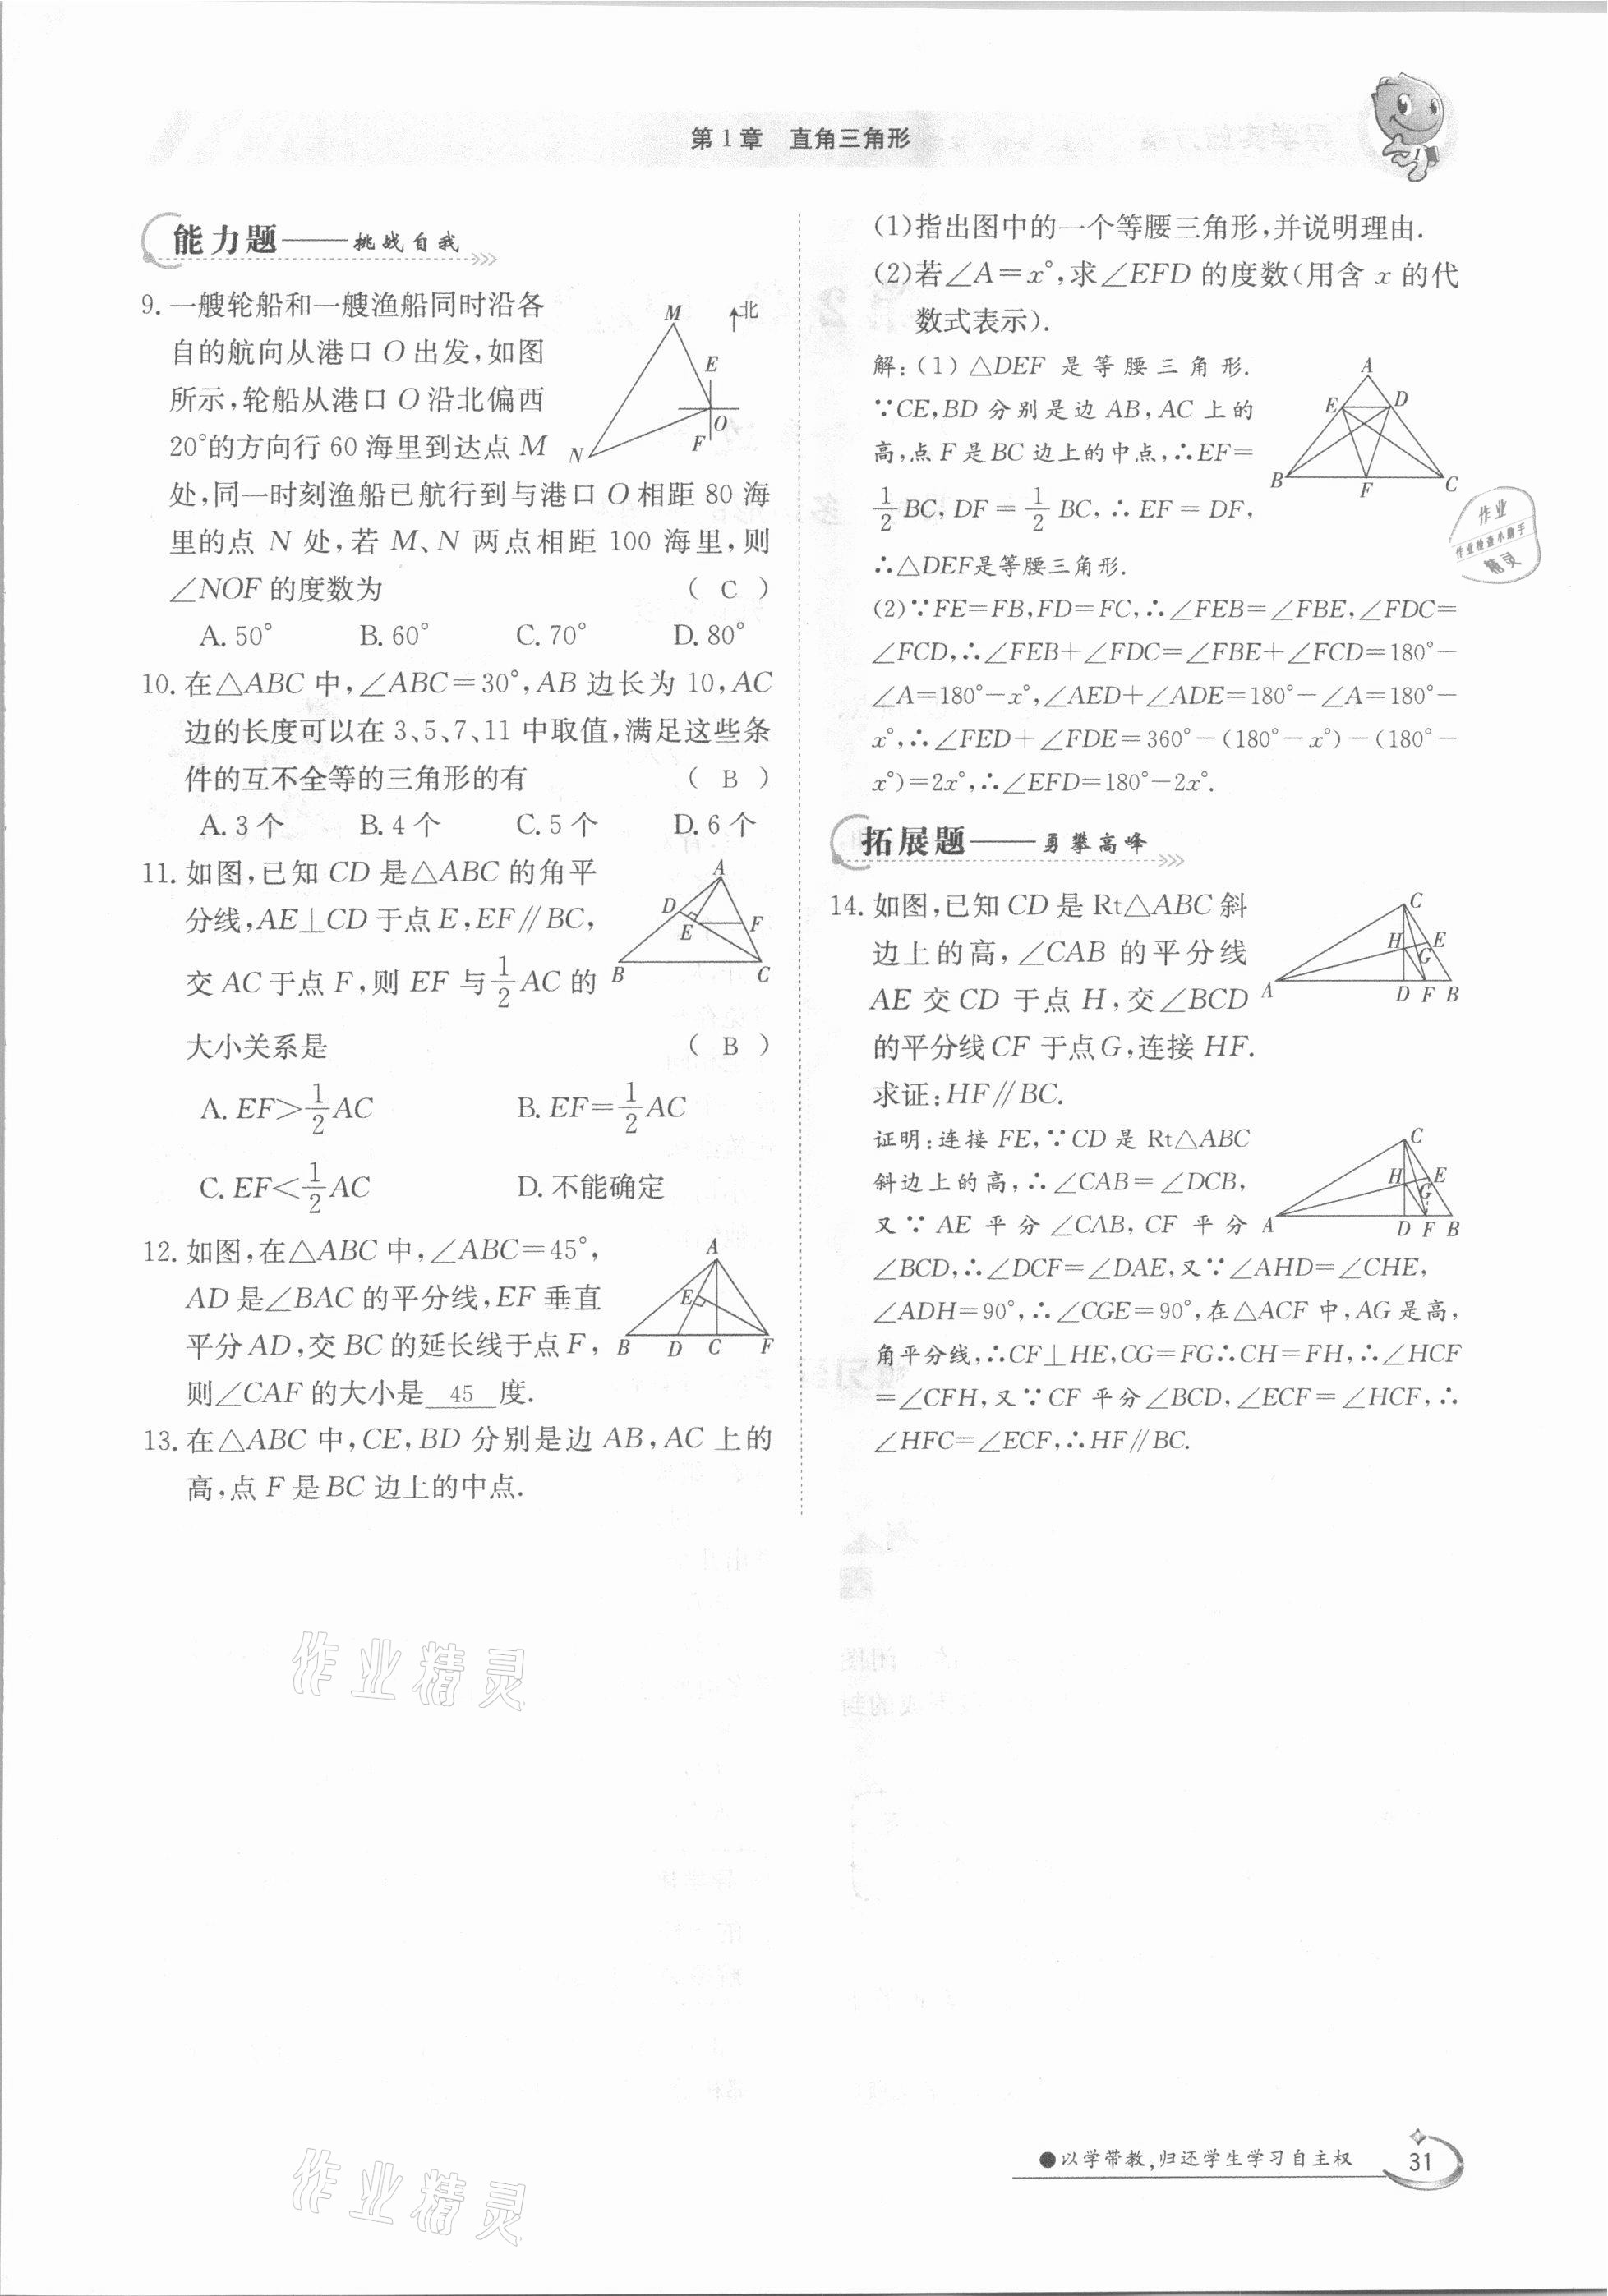 第1章 直角三角形
能力题——挑战自我
9. 一艘轮船和一艘渔船同时沿各
自的航向从港口 O 出发,如图
所示,轮船从港口 O 沿北偏西
20°的方向行 60 海里到达点 M
处,同一时刻渔船已航行到与港口 O 相距 80 海
里的点 N 处,若 M、N 两点相距 100 海里,则
∠NOF 的度数为 ( C )
A. 50° B. 60° C. 70° D. 80°
M
北
E
O
F
N
10. 在△ABC 中,∠ABC=30°,AB 边长为 10,AC
边的长度可以在 3、5、7、11 中取值,满足这些条
件的互不全等的三角形的有 ( B )
A. 3 个 B. 4 个 C. 5 个 D. 6 个
11. 如图,已知 CD 是△ABC 的角平
分线,AE⊥CD 于点 E,EF∥BC,
交 AC 于点 F,则 EF 与1/2AC 的
大小关系是 ( B )
A. EF>1/2AC B. EF=1/2AC
C. EF<1/2AC D. 不能确定
A
D
E
F
B
C
12. 如图,在△ABC 中,∠ABC=45°,
AD 是∠BAC 的平分线,EF 垂直
平分 AD,交 BC 的延长线于点 F,
则∠CAF 的大小是 45 度.
A
E
B D C F
13. 在△ABC 中,CE,BD 分别是边 AB,AC 上的
高,点 F 是 BC 边上的中点.
(1)指出图中的一个等腰三角形,并说明理由.
(2)若∠A=x°,求∠EFD 的度数(用含 x 的代
数式表示).
解:(1)△DEF 是等腰三角形.
∵CE,BD 分别是边 AB,AC 上的
高,点 F 是 BC 边上的中点,∴EF=
1/2BC,DF=1/2BC,∴EF=DF,
∴△DEF是等腰三角形.
A
E D
B
F
C
(2)∵FE=FB,FD=FC,∴∠FEB=∠FBE,∠FDC=
∠FCD,∴∠FEB+∠FDC=∠FBE+∠FCD=180°-
∠A=180°-x°,∠AED+∠ADE=180°-∠A=180°-
x°,∴∠FED+∠FDE=360°-(180°-x°)-(180°-
x°)=2x°,∴∠EFD=180°-2x°.
拓展题——勇攀高峰
14. 如图,已知 CD 是 Rt△ABC 斜
边上的高,∠CAB 的平分线
AE 交 CD 于点 H,交∠BCD
的平分线 CF 于点 G,连接 HF.
求证:HF∥BC.
C
H E
G
A
D F B
证明:连接 FE,∵CD 是 Rt△ABC
斜边上的高,∴∠CAB=∠DCB,
又∵AE 平分∠CAB,CF 平分
∠BCD,∴∠DCF=∠DAE,又∵∠AHD=∠CHE,
∠ADH=90°,∴∠CGE=90°,在△ACF 中,AG 是高,
角平分线,∴CF⊥HE,CG=FG∴CH=FH,∴∠HCF
=∠CFH,又∵CF 平分∠BCD,∠ECF=∠HCF,∴
∠HFC=∠ECF,∴HF∥BC.
C
H E
G
A
D F B
作业
作业检查小助手
精灵
作业精灵
作业精灵
●以学带教,归还学生学习自主权
31